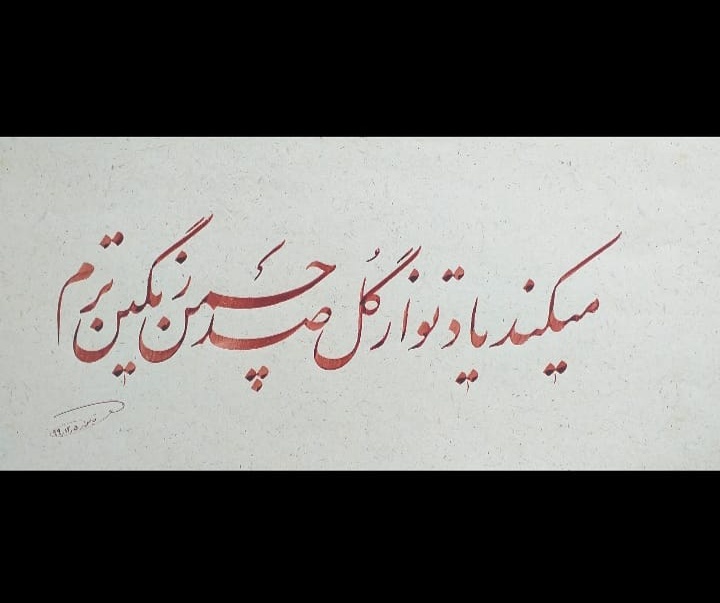 میکند یاد تو از گُل صد چَمن رنگین ترم